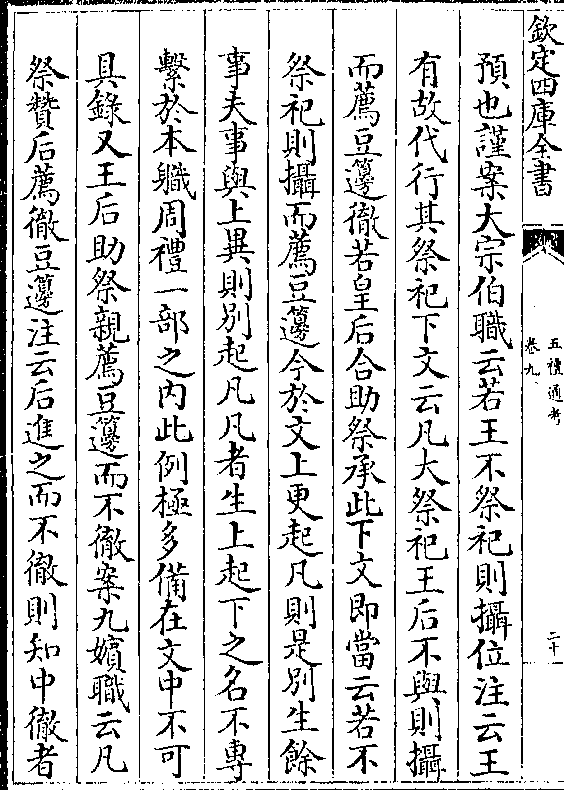 欽定四庫全書
五禮通考
卷九
二十
預也謹案大宗伯職云若王不祭祀則攝位注云王
有故代行其祭祀下文云凡大祭祀王后不與則攝
而薦豆籩徹若皇后合助祭承此下文即當云若不
祭祀則攝而薦豆籩今於文上更起凡則是別生餘
事夫事與上異則別起凡凡者生上起下之名不專
繫於本職周禮一部之内此例極多備在文中不可
具錄又王后助祭親薦豆籩而不徹案九嬪職云凡
祭贊后薦徹豆籩注云后進之而不徹則知中徹者